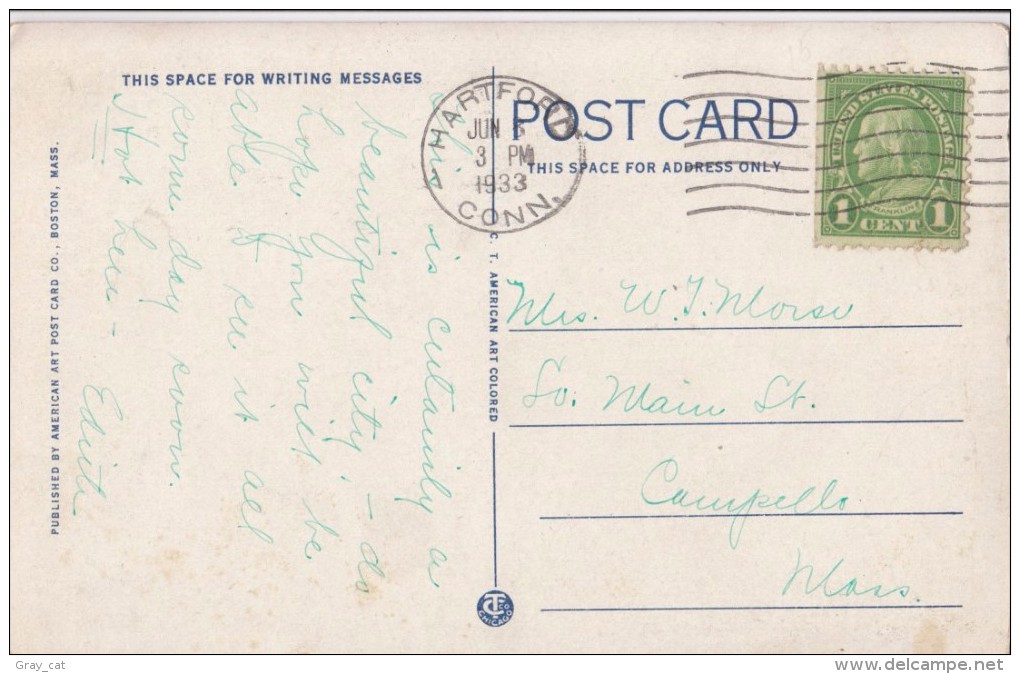 THIS SPACE FOR WRITING MESSAGES
This is certainly a
beautiful city, - do
hope you will be
able to see it all
some day soon.
Hot here -
Edith
PUBLISHED BY AMERICAN ART POST CARD CO., BOSTON, MASS.
C. T. AMERICAN ART COLORED
HARTFORD
JUN
3 PM
1933
CONN.
POST CARD
THIS SPACE FOR ADDRESS ONLY
UNITED STATES POSTAGE
FRANKLIN
1 CENT 1
Mrs. W. J. Morse
So. Main St.
Campello
Mass.
CT CO
CHICAGO
Gray_cat
www.delcampe.net